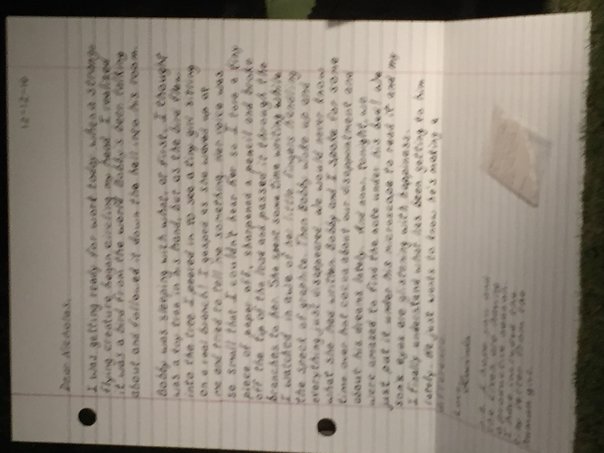 12-12-10
Dear Nicholas,
I was getting ready for work today when a strange
flying creature began circling my head. I realized
it was a bird from the world Bobby's been talking
about and followed it down the hall into his room.
Bobby was sleeping with what, at first, I thought
was a toy tree in his hand, but as the bird flew
into the tree I peered in to see a tiny girl sitting
on a real branch! I gasped as she waved up at
me and tried to tell me something. Her voice was
so small that I couldn't hear her so I tore a tiny
piece of paper off, sharpened a pencil and broke
off the tip of the lead and passed it through the
branches to her. She spent some time writing while
I watched in awe of her little fingers
the speck of graphite. Then Bobby woke up and
everything just disappeared. We would never know
what she had written. Bobby and I spoke for some
time over hot cocoa about our disappointment and
about his dreams lately. And now, tonight, we
were amazed to find the note under his bed! We
just put it under his microscope to read it and my
son's eyes are glistening with happiness.
I finally understand what has been getting to him
lately. He just wants to know he's making a
difference.
Love,